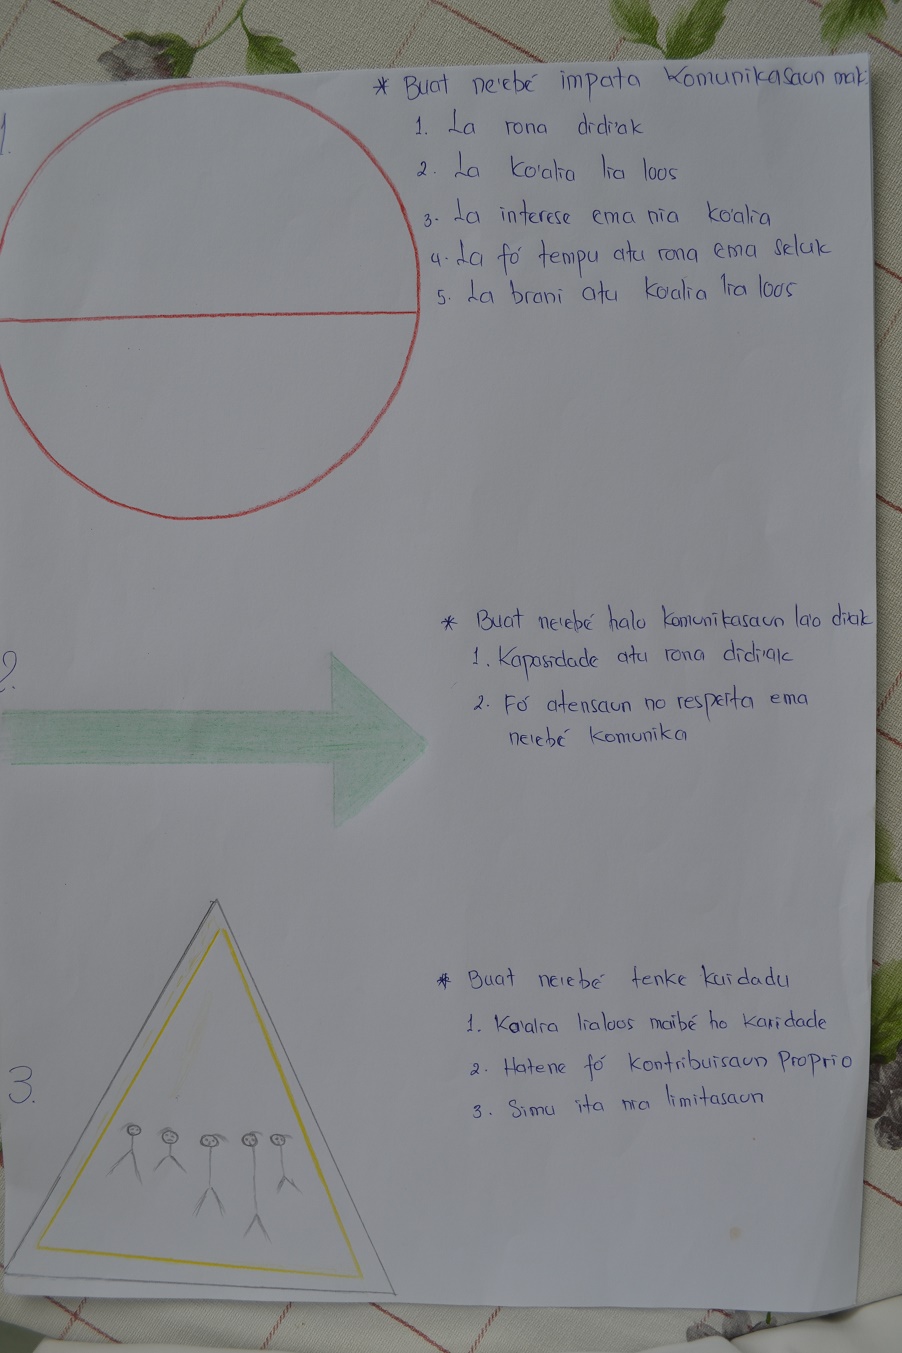 1.
* Buat ne'ebé impata Komunikasaun mak
1. La rona didi'ak
2. La Ko'alia lia loos
3. La interese ema nia ko'alia
4. La fó tempu atu rona ema seluk
5. La brani atu Ko'alia lia loos
2.
* Buat ne'ebé halo Komunikasaun la'o diak
1. Kapasidade atu rona didi'ak
2. Fó atensaun no respeita ema
ne'ebé Komunika
3.
* Buat ne'ebé tenke kuidadu
1. Ko'alia lialoos maibé ho Karidade
2. Hatene fó Kontribuisaun Proprio
3. Simu ita nia limitasaun